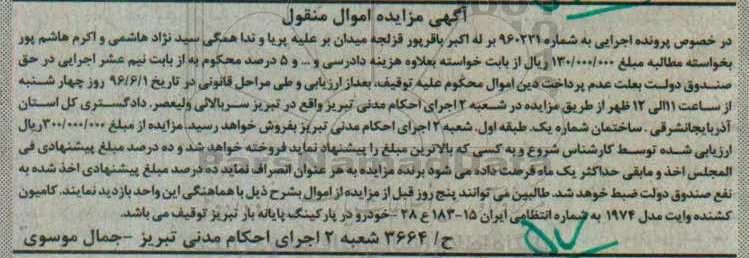 آگهی مزایده اموال منقول
در خصوص پرونده اجرایی به شماره ۹۶۰۲۳۱ بر له اکبر باقرپور قزلجه میدان بر علیه پریا و ندا همگی سید نژاد هاشمی و اکرم هاشم پور
بخواسته مطالبه مبلغ ۱۳۰/۰۰۰/۰۰۰ ریال از بابت خواسته بعلاوه هزینه دادرسی و ... و ۵ درصد محکوم به از بابت نیم عشر اجرایی در حق
صندوق دولت بعلت عدم پرداخت دین اموال محکوم علیه توقیف، بعداز ارزیابی و طی مراحل قانونی در تاریخ ۹۶/۶/۱ روز چهار شنبه
از ساعت ۱۱الی ۱۲ ظهر از طریق مزایده در شعبه ۲ اجرای احکام مدنی تبریز واقع در تبریز سربالائی ولیعصر. دادگستری کل استان
آذربایجانشرقی . ساختمان شماره یک. طبقه اول. شعبه ۲ اجرای احکام مدنی تبریز بفروش خواهد رسید. مزایده از مبلغ ۳۰۰/۰۰۰/۰۰۰ریال
ارزیابی شده توسط کارشناس شروع و به کسی که بالاترین مبلغ را پیشنهاد نماید فروخته خواهد شد و ده درصد مبلغ پیشنهادی فی
المجلس اخذ و مابقی حداکثر یک ماه فرصت داده می شود برنده مزایده به هر عنوان انصراف نماید ده درصد مبلغ پیشنهادی اخذ شده به
نفع صندوق دولت ضبط خواهد شد. طالبین می توانند پنج روز قبل از مزایده از اموال بشرح ذیل با هماهنگی این واحد بازدید نمایند. کامیون
کشنده وایت مدل ۱۹۷۴ به شماره انتظامی ایران ۱۵-۱۸۳ ع ۲۸ - خودرو در پارکینگ پایانه بار تبریز توقیف می باشد.
ح/ ۳۶۶۴ شعبه ۲ اجرای احکام مدنی تبریز -جمال موسوی